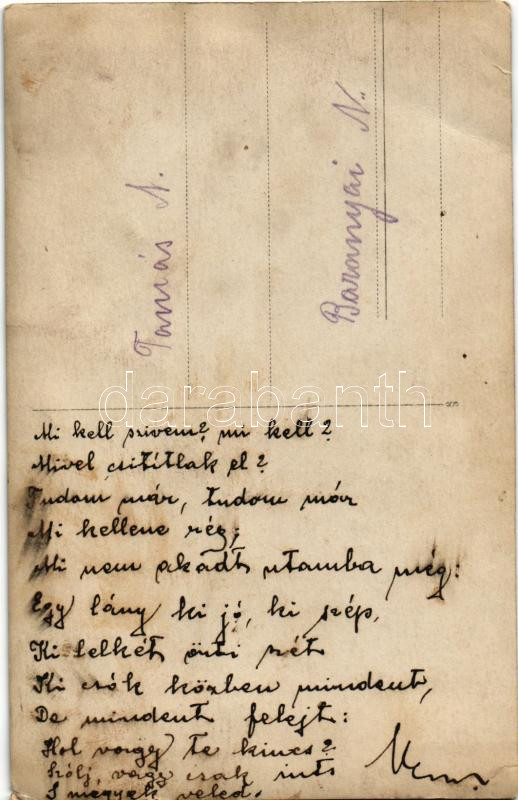 Tamás N.
Baranyai N.
darabanth
Mi kell szivem? mi kell?
Mivel csitítlak el?
Tudom már, tudom már
Mi kellene rég;
Mi nem akadt utamba még:
Egy lány ki jó, ki szép,
Ki lelkét önti szét
Ki csók közben mindent,
De mindent felejt:
Hol vagy te kincs?
Szólj, vagy csak ints
S megyek veled.